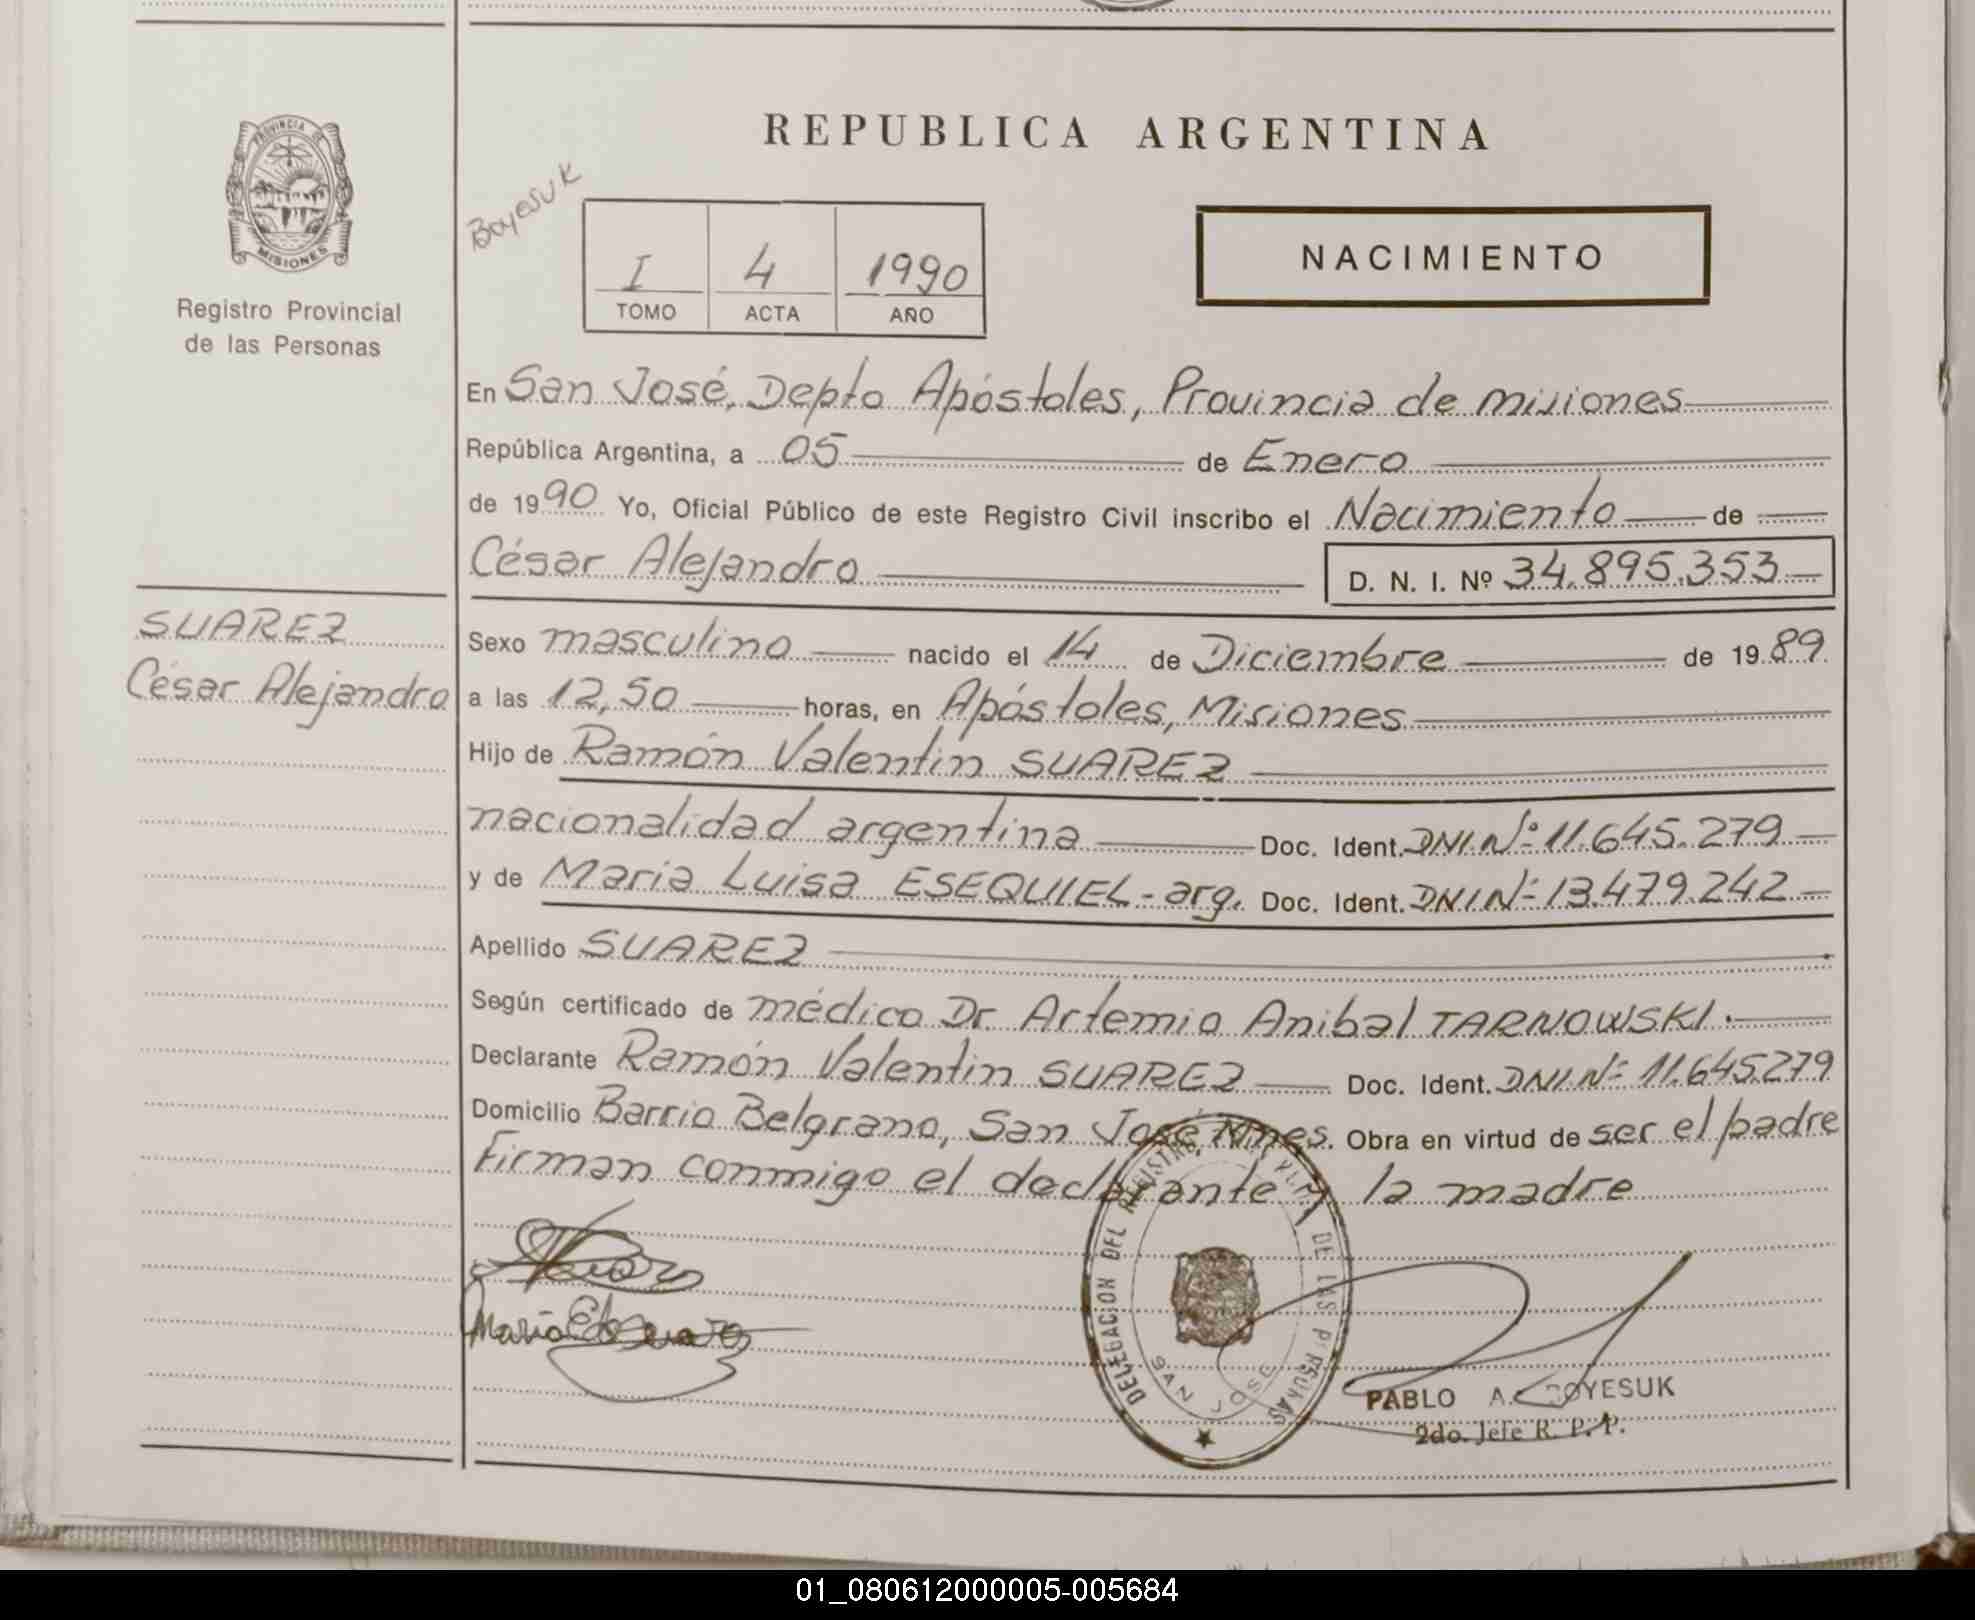 REPUBLICA ARGENTINA
PROVINCIA DE
MISIONES
Registro Provincial
de las Personas
Boyesuk
I 4 1990
TOMO ACTA AÑO
NACIMIENTO
En San José, Depto Apóstoles, Provincia de misiones
República Argentina, a 05 de Enero
de 1990 Yo, Oficial Público de este Registro Civil inscribo el Nacimiento de
César Alejandro D. N. I. Nº 34.895.353
SUAREZ
César Alejandro
Sexo masculino nacido el 14 de Diciembre de 1989
a las 12,50 horas, en Apóstoles, Misiones
Hijo de Ramón Valentin SUAREZ
nacionalidad argentina Doc. Ident. DNI.Nº 11.645.279
y de Maria Luisa ESEQUIEL - arg. Doc. Ident. DNI Nº 13.479.242
Apellido SUAREZ
Según certificado de médico Dr. Artemio Anibal TARNOWSKI.
Declarante Ramón Valentin SUAREZ Doc. Ident. DNI.Nº 11.645279
Domicilio Barrio Belgrano, San José Mnes. Obra en virtud de ser el padre
Firman conmigo el declarante y la madre
DELEGACION DEL REGISTRO DE LAS PERSONAS
SAN JOSE
PABLO A. BOYESUK
2do. Jefe R. P. P.
01_080612000005-005684